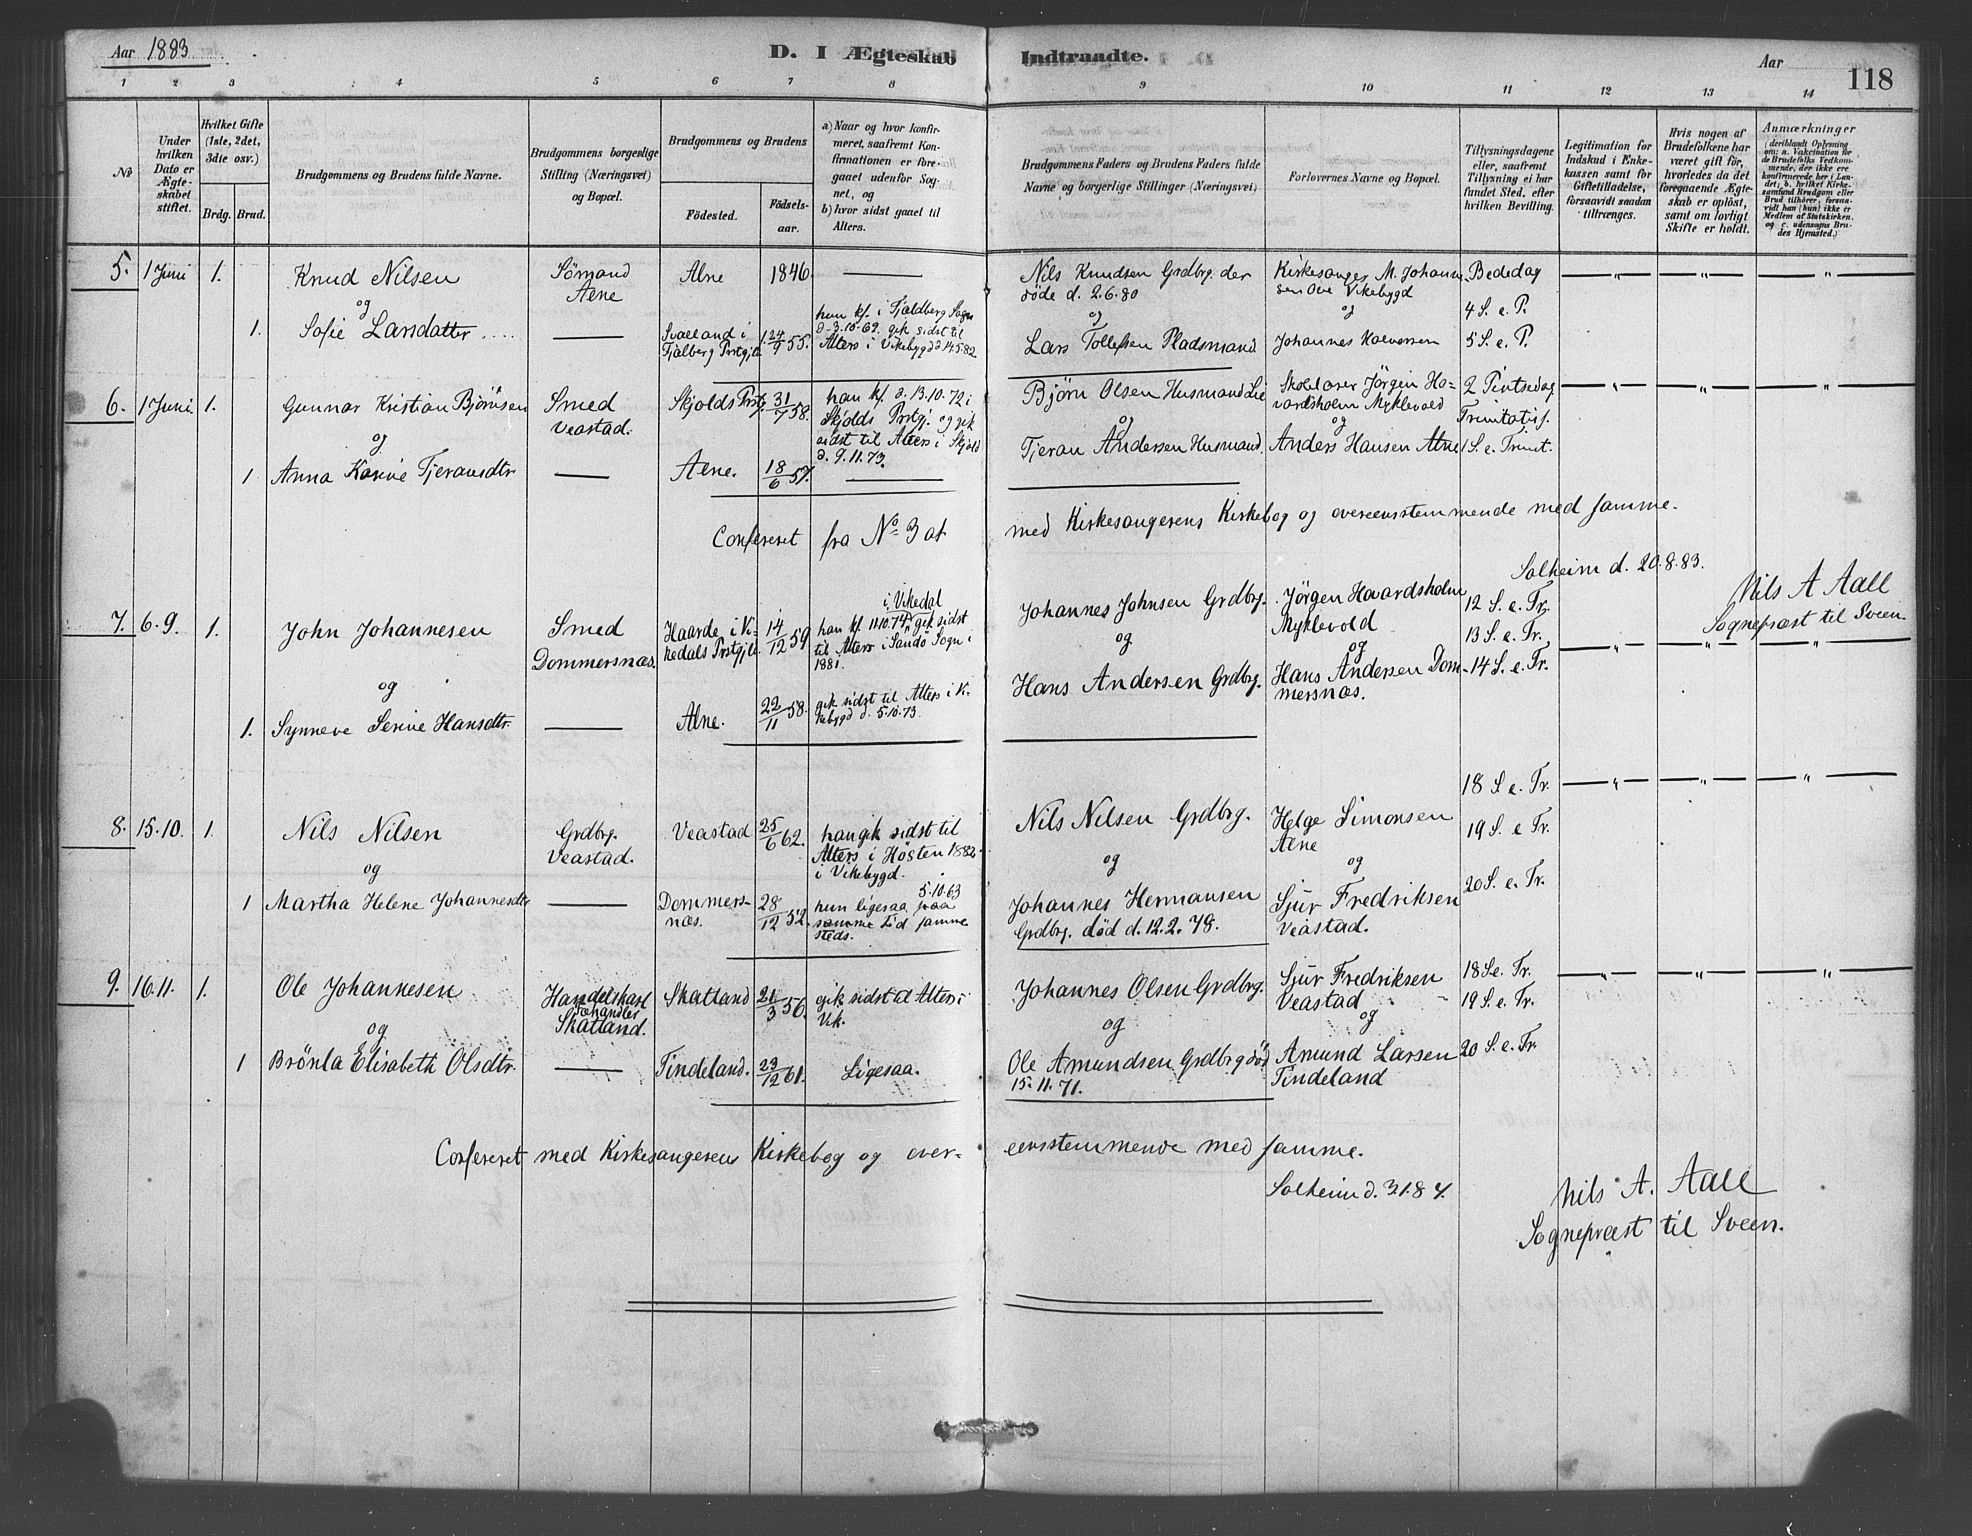 Aar 1883
D. I Ægteskab Indtraadte.
Aar
118
1 2 3 4 5 6 7 8 9 10 11 12 13 14
No
Under hvilken Dato er Ægteskabet stiftet.
Hvilket Gifte (1ste, 2det, 3die osv.)
Brdg. Brud.
Brudgommens og Brudens fulde Navne.
Brudgommens borgerlige Stilling (Næringsvei) og Bopæl.
Brudgommens og Brudens
Fødested.
Fødselsaar.
a) Naar og hvor konfirmeret, saafremt Konfirmationen er foregaaet udenfor Sognet, og
b) hvor sidst gaaet til Alters.
Brudgommens Faders og Brudens Faders fulde Navne og borgerlige Stillinger (Næringsvei)
Forlovernes Navne og Bopæl.
Tillysningsdagene eller, saafremt Tillysning ei har fundet Sted, efter hvilken Bevilling.
Legitimation for Indskud i Enkekassen samt for Giftetilladelse, forsaavidt saadan tiltrænges.
Hvis nogen af Brudefolkene har været gift før, hvorledes da det foregaaende Ægteskab er opløst, samt om lovligt Skifte er holdt.
Anmærkninger (deriblandt Oplysning om: a. Vakcination for de Brudefolks Vedkommende, der ikke ere konfirmerede her i Landet; b. hvilket Kirkesamfund Brudgom eller Brud tilhører, forsaavidt han (hun) ikke er Medlem af Statskirken, og c. udensogns Brudes Hjemsted.)
5. 1 Juni 1. Knud Nilsen Sømand Alne Alne 1846. — Nils Knudsen Grdbrg. der døde d. 2.6.80 Kirkesanger M. Johannesen Ove Vikebygd Bededag — " —
og og og 4 S. e. P.
1. Sofie Larsdatter .... — Svalland i Fjælberg Prstgjld 24/9 55. hun kf. i Fjældberg Sogn d. 3.10.69. gik sidst til Alters i Vikebygd d. 14.5.82 Lars Tollefsen Pladsmand. Johannes Halvorsen 5 S. e. P.
6. 1 Juni 1. Gunnar Kristian Bjørnsen Smed Veastad. Skjolds Prstg. 31/7 58. han kf. d. 13.10.72 i Skjolds Prstgj. og gik sidst til Alters i Skjold d. 9.11.73. Bjørn Olsen Husmand Lie Skolelærer Jørgen Hovardsholm Myklevold 2 Pintsedag — " —
og og og Trinitatisf.
1 Anna Karine Tjeransdtr — Alne. 18/6 57. — Tjeran Andersen Husmand. Anders Hansen Alne 1 S. e. Trinit.
Confereret fra No 3 at med Kirkesangerens Kirkebog og overeensstemmende med samme.
Solheim d. 20.8.83.
Nils A Aall
Sogneprest til Sveen.
7. 6.9. 1. John Johannesen Smed Dommersnæs. Haarde i Vikedals Prstgjld. 14/12 59 han kf. i Vikedal 11.10.74 gik sidst til Alters i Sands Sogn i 1881. Johannes Johnsen Grdbrg. Jørgen Hovardsholm Myklevold 12 S. e. Tr.
og og og 13 S. e. Tr.
1. Synneve Serine Hansdtr. — Alne. 22/11 58. gik sidst til Alters i Vikebygd d. 5.10.73. Hans Andersen Grdbrg. Hans Andersen Dommersnæs. 14 S. e. Tr. — " —
8. 15.10. 1. Nils Nilsen Grdbrg. Veastad. Veastad 25/6 62. han gik sidst til Alters i Høsten 1882 i Vikebygd. Nils Nilsen Grdbrg. Helge Simonsen Alne 18 S. e. Tr. — " —
og og og 19 S. e Tr.
1 Martha Helene Johannesdtr — Dommersnæs. 28/12 52. 5.10.63 hun ligesaa paa samme Tid sammesteds. Johannes Hermansen Grdbrg. død d. 12.2.78. Sjur Fredriksen Veastad. 20 S. e. Tr.
9. 16.11. 1. Ole Johannesen Handelskarl Skatland. Skatland 21/3 56. gik sidst til Alters i Vik. Johannes Olsen Grdbrg. Sjur Fredriksen Veastad 18 S. e. Tr. — " —
og og og 19 S. e. Tr.
1 Brønla Elisabeth Olsdtr. — Tindeland. 23/12 61. Ligesaa. Ole Amundsen Grdbrg død 15.11.71. Amund Larsen Tindeland 20 S. e. Tr.
Confereret med Kirkesangerens Kirkebog og overeensstemmende med samme.
Solheim d. 3.1.84.
Nils A. Aall
Sogneprest til Sveen.